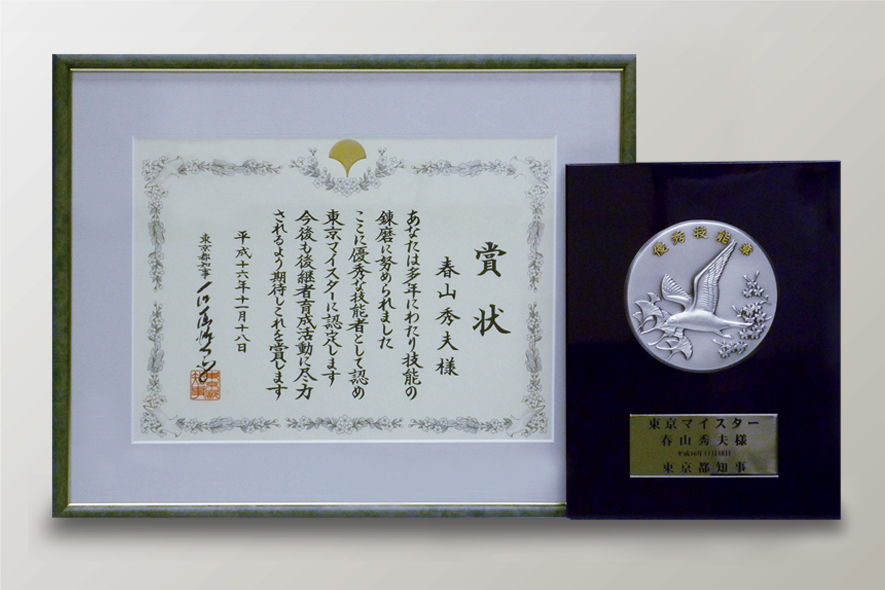 賞状
春山秀夫様
あなたは多年にわたり技能の
錬磨に努められました
ここに優秀な技能者として認め
東京マイスターに認定します
今後も後継者育成活動に尽力
されるよう期待しこれを賞します
平成十六年十一月十八日
東京都知事
優秀技能章
東京マイスター
春山秀夫様
平成16年11月18日
東京都知事